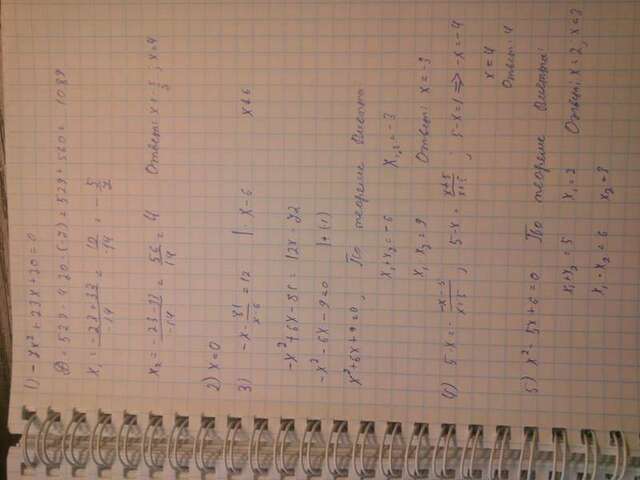 1) -7x² + 23x + 20 = 0
D = 529 - 4·20·(-7) = 529 + 560 = 1089
x₁ = (-23+33)/(-14) = 10/(-14) = -5/7
x₂ = (-23-33)/(-14) = 56/14 = 4 Ответ: x = ; x=4
2) x=0
3) -x - 81/(x-6) = 12 |· x-6 x≠6
-x² + 6x - 81 = 12x - 72
-x² - 6x - 9 = 0 |·(-1)
x² + 6x + 9 = 0, По теореме Виетта
x₁+x₂ = -6 x₁,₂ = -3
x₁·x₂ = 9 Ответ: x = -3
4) 5-x = - (-x-5)/(x+5) ; 5-x = (x+5)/(x+5) ; 5-x=1 => -x=-4
x=4
Ответ: 4
5) x² - 5x + 6 = 0 По теореме Виетта:
x₁+x₂ = 5 x₁=2 Ответ: x=2, x=3
x₁·x₂ = 6 x₂=3